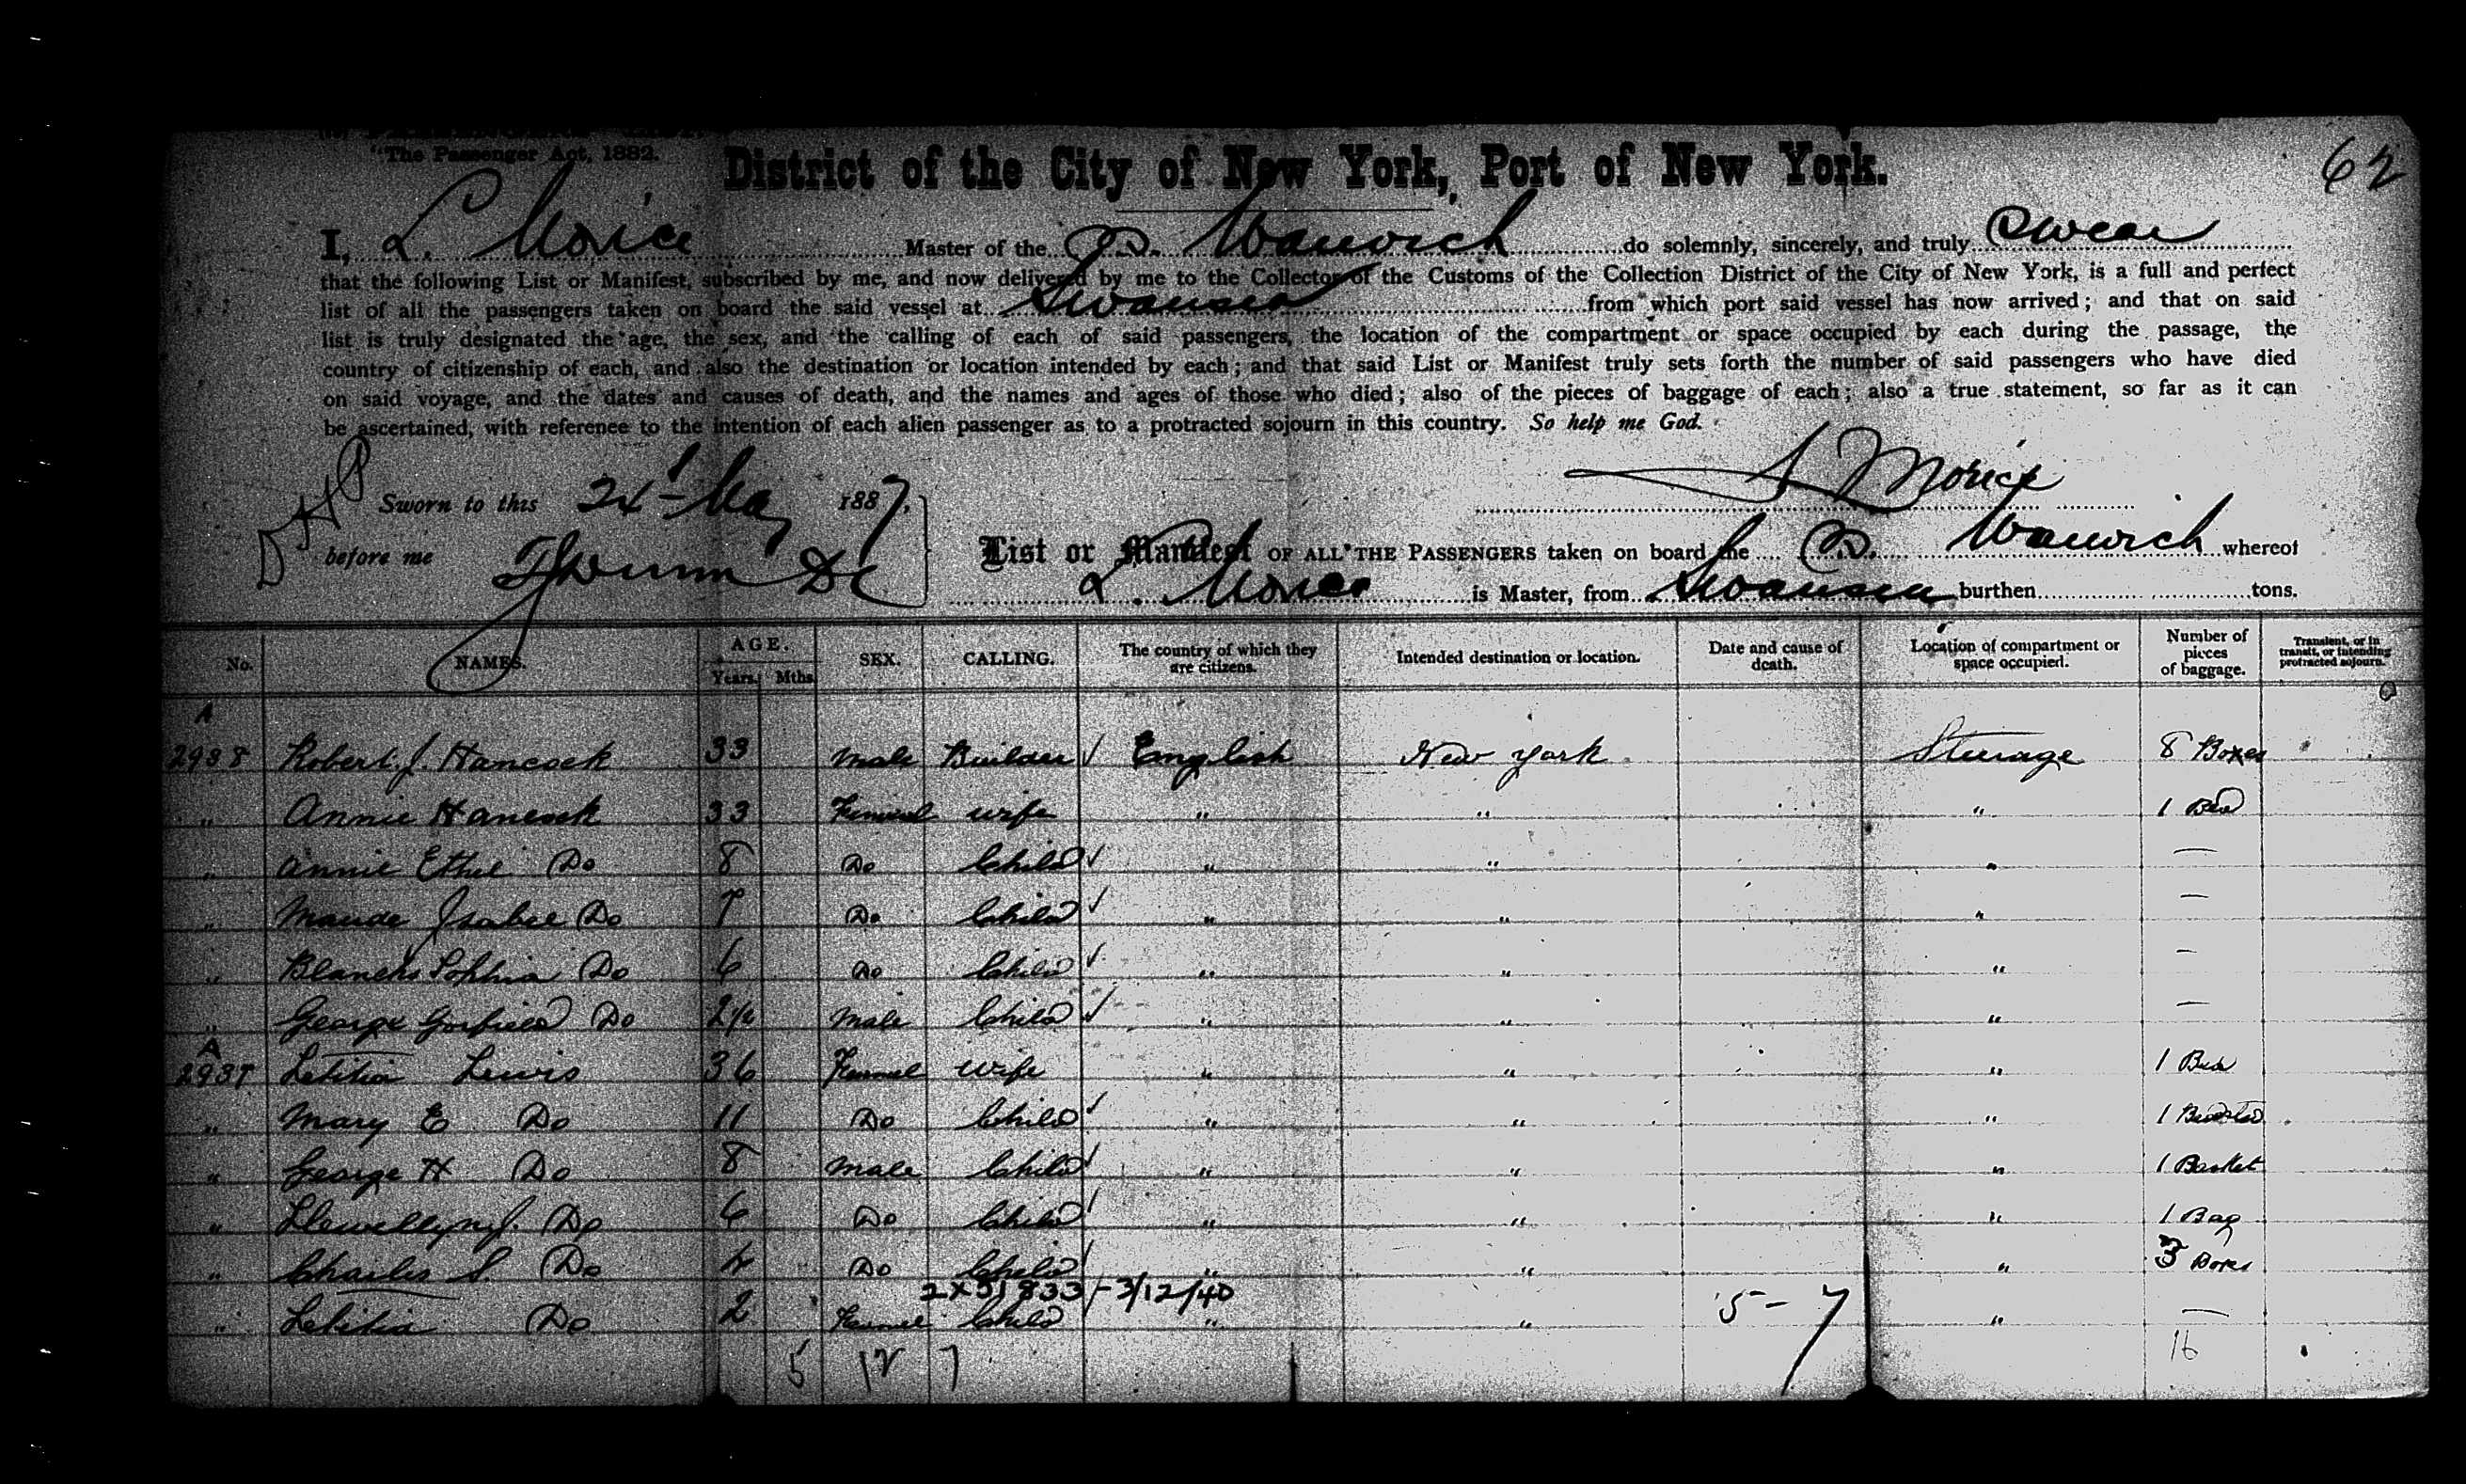 "The Passenger Act, 1882.
District of the City of New York, Port of New York.
62
I, L. Morice Master of the S.S. Warwick do solemnly, sincerely, and truly Swear
that the following List or Manifest, subscribed by me, and now delivered by me to the Collector of the Customs of the Collection District of the City of New York, is a full and perfect
list of all the passengers taken on board the said vessel at Swansea from which port said vessel has now arrived; and that on said
list is truly designated the age, the sex, and the calling of each of said passengers, the location of the compartment or space occupied by each during the passage, the
country of citizenship of each, and also the destination or location intended by each; and that said List or Manifest truly sets forth the number of said passengers who have died
on said voyage, and the dates and causes of death, and the names and ages of those who died; also of the pieces of baggage of each; also a true statement, so far as it can
be ascertained, with reference to the intention of each alien passenger as to a protracted sojourn in this country. So help me God.
L Morice
Sworn to this 24 May 1887,
before me
List or Manifest OF ALL THE PASSENGERS taken on board the Warwick whereof
L. Morice is Master, from Swansea burthen tons.
No. NAMES. AGE. Years. Mths. SEX. CALLING. The country of which they are citizens. Intended destination or location. Date and cause of death. Location of compartment or space occupied. Number of pieces of baggage. Transient, or in transit, or intending protracted sojourn.
A
2938 Robert J. Hancock 33 Male Builder ✓ English New York Steerage 8 Boxes
" Annie Hancock 33 Femeal wife " " " 1 Bed
" Annie Ethel Do 8 Do Child ✓ " " " —
" Maude Isabel Do 7 Do Child ✓ " " " —
" Blanche Sophia Do 6 Do Child ✓ " " " —
" George Garfield Do 2½ Male Child ✓ " " " —
A
2937 Letitia Lewis 36 Femeal Wife " " " 1 Bed
" Mary E Do 11 Do Child ✓ " " " 1 Bedsted
" George H Do 8 Male Child ✓ " " " 1 Basket
" Llewellyn J. Do 6 Do Child ✓ " " " 1 Bag
" Charles S. Do 4 Do Child ✓ " " " 3 Boxes
2X51833-3/12/40
" Letitia Do 2 Femeal Child " " 5-7 " —
5 12 7 16